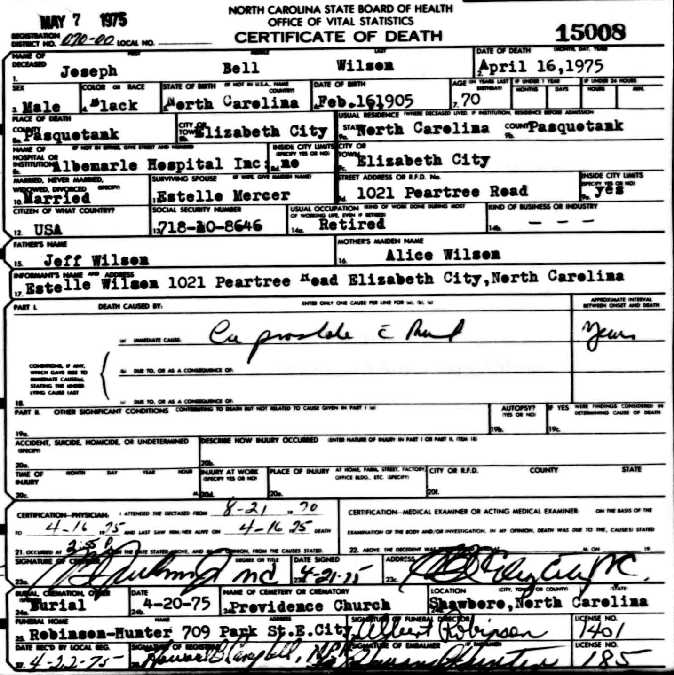 MAY 7 1975
NORTH CAROLINA STATE BOARD OF HEALTH
OFFICE OF VITAL STATISTICS
CERTIFICATE OF DEATH
15008
REGISTRATION DISTRICT NO. 070-00 LOCAL NO.
NAME OF DECEASED FIRST MIDDLE LAST DATE OF DEATH (MONTH, DAY, YEAR)
1. Joseph Bell Wilson 2. April 16,1975
SEX COLOR OR RACE STATE OF BIRTH (IF NOT IN U.S.A. NAME COUNTRY) DATE OF BIRTH AGE (IN YEARS LAST BIRTHDAY) IF UNDER 1 YEAR IF UNDER 24 HOURS
MONTHS DAYS HOURS MIN.
3. Male 4. Black North Carolina Feb.161905 7. 70
PLACE OF DEATH USUAL RESIDENCE (WHERE DECEASED LIVED. IF INSTITUTION, RESIDENCE BEFORE ADMISSION)
COUNTY Pasquotank CITY OR TOWN Elizabeth City STATE North Carolina COUNTY Pasquotank
NAME OF HOSPITAL OR INSTITUTION (IF NOT IN EITHER, GIVE STREET AND NUMBER) INSIDE CITY LIMITS (SPECIFY YES OR NO) CITY OR TOWN
Albemarle Hospital Inc: no Elizabeth City
MARRIED, NEVER MARRIED, WIDOWED, DIVORCED (SPECIFY) SURVIVING SPOUSE (IF WIFE, GIVE MAIDEN NAME) STREET ADDRESS OR R.F.D. No. INSIDE CITY LIMITS (SPECIFY YES OR NO)
10. Married Estelle Mercer 1021 Peartree Road yes
CITIZEN OF WHAT COUNTRY? SOCIAL SECURITY NUMBER USUAL OCCUPATION (KIND OF WORK DONE DURING MOST OF WORKING LIFE, EVEN IF RETIRED) KIND OF BUSINESS OR INDUSTRY
12. USA 13. 718-10-8646 14a. Retired 14b. - - -
FATHER'S NAME MOTHER'S MAIDEN NAME
15. Jeff Wilson 16. Alice Wilson
INFORMANT'S NAME AND ADDRESS
17. Estelle Wilson 1021 Peartree Road Elizabeth City,North Carolina
PART I. DEATH CAUSED BY: ENTER ONLY ONE CAUSE PER LINE FOR (a), (b), (c) APPROXIMATE INTERVAL BETWEEN ONSET AND DEATH
(a) IMMEDIATE CAUSE: Ca prostate c̄ Years
CONDITIONS, IF ANY, WHICH GAVE RISE TO IMMEDIATE CAUSE(a), STATING THE UNDERLYING CAUSE LAST
(b) DUE TO, OR AS A CONSEQUENCE OF:
18. (c) DUE TO, OR AS A CONSEQUENCE OF:
PART II. OTHER SIGNIFICANT CONDITIONS CONTRIBUTING TO DEATH BUT NOT RELATED TO CAUSE GIVEN IN PART I (a) AUTOPSY? (YES OR NO) IF YES WERE FINDINGS CONSIDERED IN DETERMINING CAUSE OF DEATH
19a. 19b. 19c.
ACCIDENT, SUICIDE, HOMICIDE, OR UNDETERMINED (SPECIFY) DESCRIBE HOW INJURY OCCURRED (ENTER NATURE OF INJURY IN PART I OR PART II, ITEM 18)
20a. 20b.
TIME OF INJURY MONTH DAY YEAR HOUR INJURY AT WORK (SPECIFY YES OR NO) PLACE OF INJURY AT HOME, FARM, STREET, FACTORY OFFICE BLDG., ETC. (SPECIFY) CITY OR R.F.D. COUNTY STATE
20c. 20d. 20e. 20f.
CERTIFICATION-PHYSICIAN: I ATTENDED THE DECEASED FROM 8-21 1970 CERTIFICATION-MEDICAL EXAMINER OR ACTING MEDICAL EXAMINER: ON THE BASIS OF THE
TO 4-16 1975 AND LAST SAW HIM/HER ALIVE ON 4-16 1975 DEATH EXAMINATION OF THE BODY AND/OR INVESTIGATION, IN MY OPINION, DEATH WAS DUE TO THE CAUSE(S) STATED
21. OCCURRED AT ON THE DATE STATED ABOVE, AND IN MY OPINION, FROM THE CAUSES STATED. 22. ABOVE. THE DECEDENT WAS M. ON 19
SIGNATURE OF CERTIFIER DEGREE OR TITLE DATE SIGNED ADDRESS
23a. MD 4-21-75 23c. Eliz City NC
BURIAL, CREMATION, OTHER DATE NAME OF CEMETERY OR CREMATORY LOCATION (CITY, TOWN, OR COUNTY) (STATE)
Burial 24b. 4-20-75 Providence Church Shawboro,North Carolina
FUNERAL HOME ADDRESS SIGNATURE OF FUNERAL DIRECTOR LICENSE NO.
25. Robinson-Hunter 709 Park St.E.City, Albert Robinson 1401
DATE REC'D BY LOCAL REG. SIGNATURE OF REGISTRAR SIGNATURE OF EMBALMER LICENSE NO.
4-22-75 Howard Campbell, 185